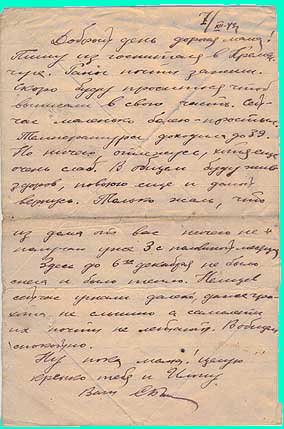 7/XII-43г.
Добрый день дорогая мама!
Пишу из госпиталя в Кремен-
чуге. Рана почти зажила.
Скоро буду проситься чтоб
выписали в свою часть. Сей-
час маленько болею простуд
Температура доходила до 39.
Но ничего
очень слаб. В общем буду жив
здоров, повоюю еще и домой
вернусь. Только жаль, что
из дома от вас ничего не
получаю уже 3 с половиной месяца
Здесь до 6го декабря не было
снега и было тепло. Немцев
сейчас угнали далеко, даже
не слышно а самолеты
их почти не летают. В общем
спокойно.
Ну пока мама! Целую
крепко тебя и
Ваш